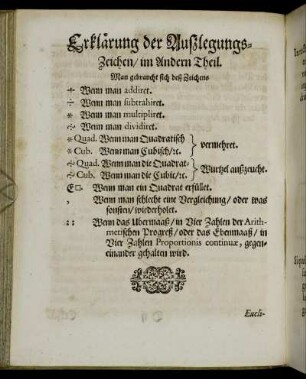 Erklärung der Außlegungs-
Zeichen/ im Andern Theil.
Man gebraucht sich deß Zeichens
Wenn man addiret.
Wenn man subtrahiret.
Wenn man multipliret.
Wenn man dividiret.
* Quad. Wenn man Quadratisch
* Cub. Wenn man Cubisch/ ꝛc. } vermehret.
Quad. Wenn man die Quadrat-
Cub. Wenn man die Cubic/ ꝛc. } Wurtzel außzeucht.
Wenn man ein Quadrat erfüllet.
, Wenn man schlecht eine Vergleichung/ oder was
sonsten/ wiederholet.
:: Wenn das Ubermaaß/ in Vier Zahlen der Arith-
metischen Progreß/ oder das Ebenmaaß/ in
Vier Zahlen Proportionis continuæ, gegen-
einander gehalten wird.
Eucli-